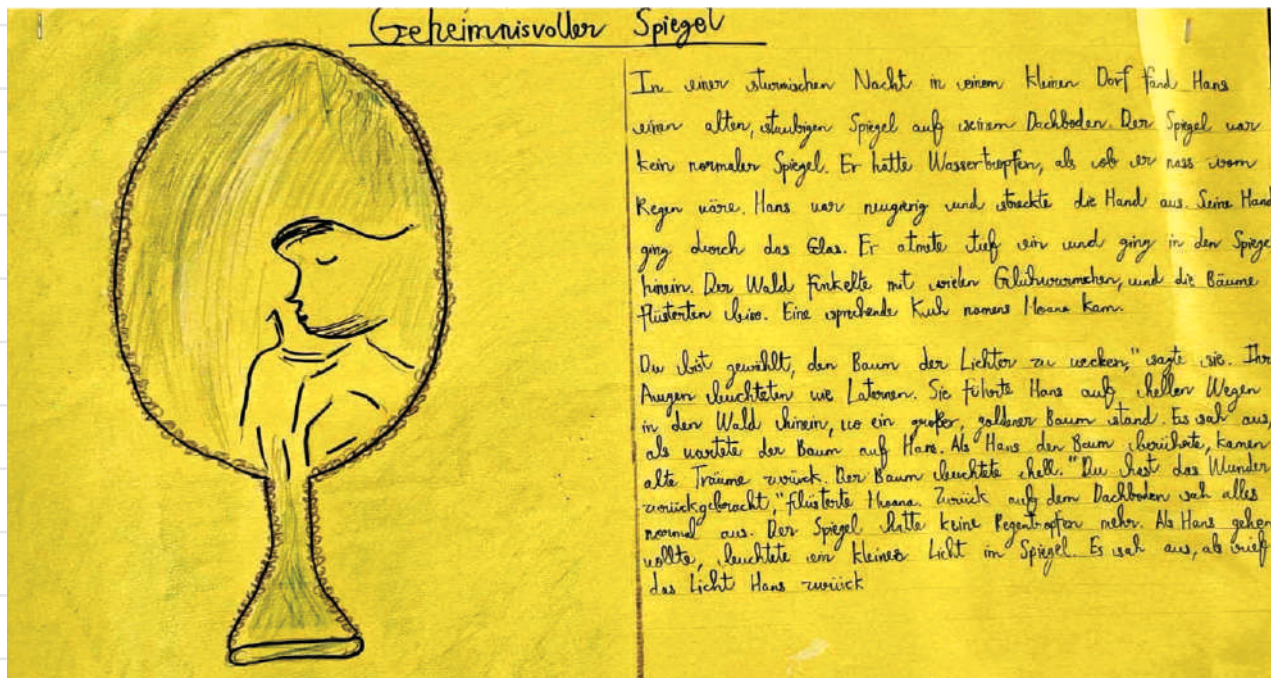 Geheimnisvoller Spiegel
In einer sturmischen Nacht in einem kleinen Dorf fand Hans
einen alten, staubigen Spiegel auf seinem Dachboden. Der Spiegel war
kein normaler Spiegel. Er hatte Wassertropfen, als ob er nass vom
Regen wäre. Hans war neugierig und streckte die Hand aus. Seine Hand
ging durch das Glas. Er atmete tief ein und ging in den Spiegel
hinein. Der Wald funkelte mit vielen Glühwurmchen, und die Bäume
flüsterten leise. Eine sprechende Kuh namens Moana kam.
Du bist gewählt, den Baum der Lichter zu wecken," sagte sie. Ihre
Augen leuchteten wie Laternen. Sie führte Hans auf hellen Wegen
in den Wald hinein, wo ein großer, goldener Baum stand. Es sah aus,
als wartete der Baum auf Hans. Als Hans den Baum berührte, kamen
alte Träume zurück. Der Baum leuchtete hell. "Du hast das Wunder
zurückgebracht," flüsterte Moana. Zurück auf dem Dachboden sah alles
normal aus. Der Spiegel hatte keine Regentropfen mehr. Als Hans gehen
wollte, leuchtete ein kleines Licht im Spiegel. Es sah aus, als rief
das Licht Hans zurück